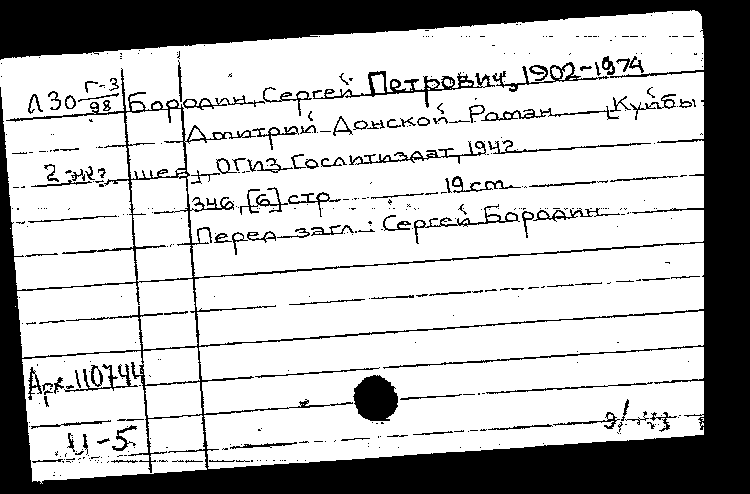 Л30 Г-3/98 Бородин, Сергей Петрович, 1902-1974
Дмитрий Донской Роман [Куйбы-
2 экз. шев], ОГИЗ Гослитиздат, 1942
346, [6] стр. 19 cm.
Перед загл.: Сергей Бородин
Арх-110744
И-5